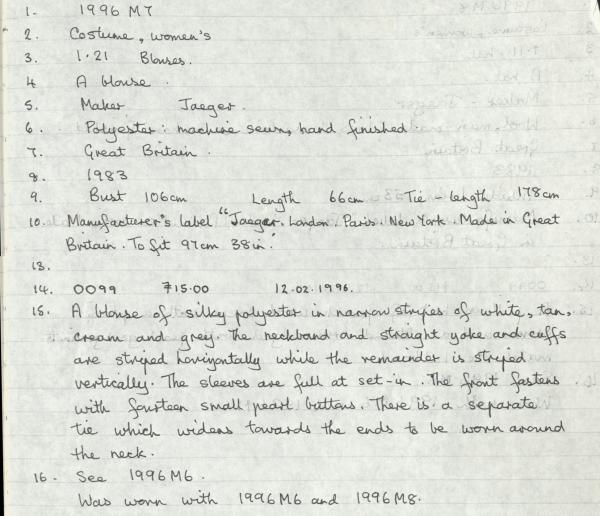 1. 1996 M7
2. Costume, women's
3. 1.21 Blouses.
4 A blouse.
5. Maker Jaeger.
6. Polyester: machine sewn, hand finished.
7. Great Britain.
8. 1983
9. Bust 106cm Length 66cm Tie-length 178cm
10. Manufacturer's label "Jaeger. London. Paris. New York. Made in Great
Britain. To fit 97cm 38in."
13.
14. 0099 £15.00 12.02.1996.
15. A blouse of silky polyester in narrow stripes of white, tan,
cream and grey. The neckband and straight yoke and cuffs
are striped horizontally while the remainder is striped
vertically. The sleeves are full at set-in. The front fastens
with fourteen small pearl buttons. There is a separate
tie which widens towards the ends to be worn around
the neck.
16. See 1996 M6.
Was worn with 1996 M6 and 1996 M8.